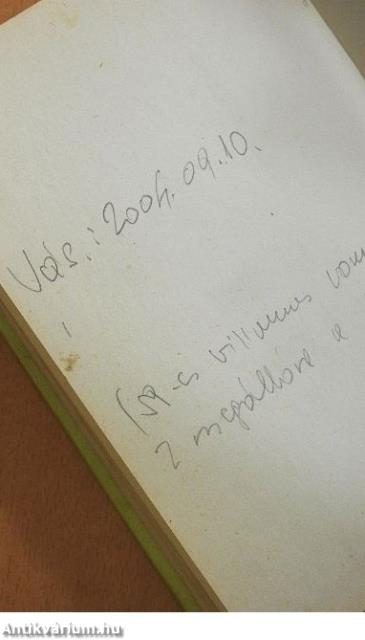 Vás.: 2004.09.10.
-es villamos
2 megállóra a
Antikvárium.hu